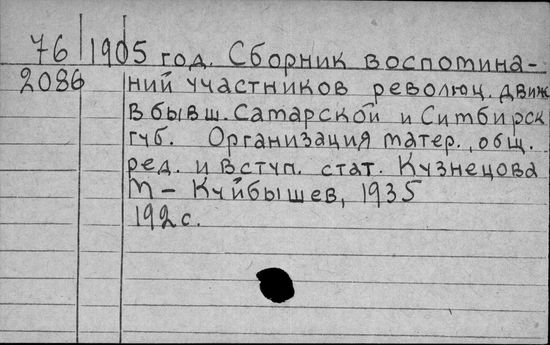 76 1905 год. Сборник воспомина-
2086 ний участников революц. движ
в бывш. Самарской и Симбирск
губ. Организация матер., общ.
ред. и вступ. стат. Кузнецова
М – Куйбышев, 1935
192 с.